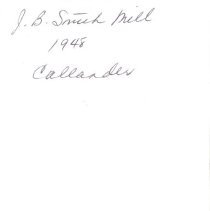 J. B. Smith Mill
1948
Callander